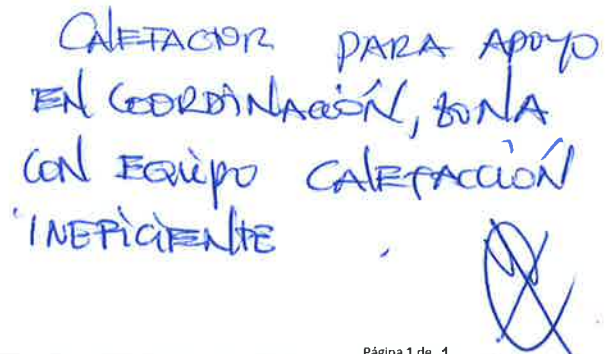 CALEFACTOR PARA APOYO
EN COORDINACIÓN, ZONA
CON EQUIPO CALEFACCIÓN
INEFICIENTE
Página 1 de 1